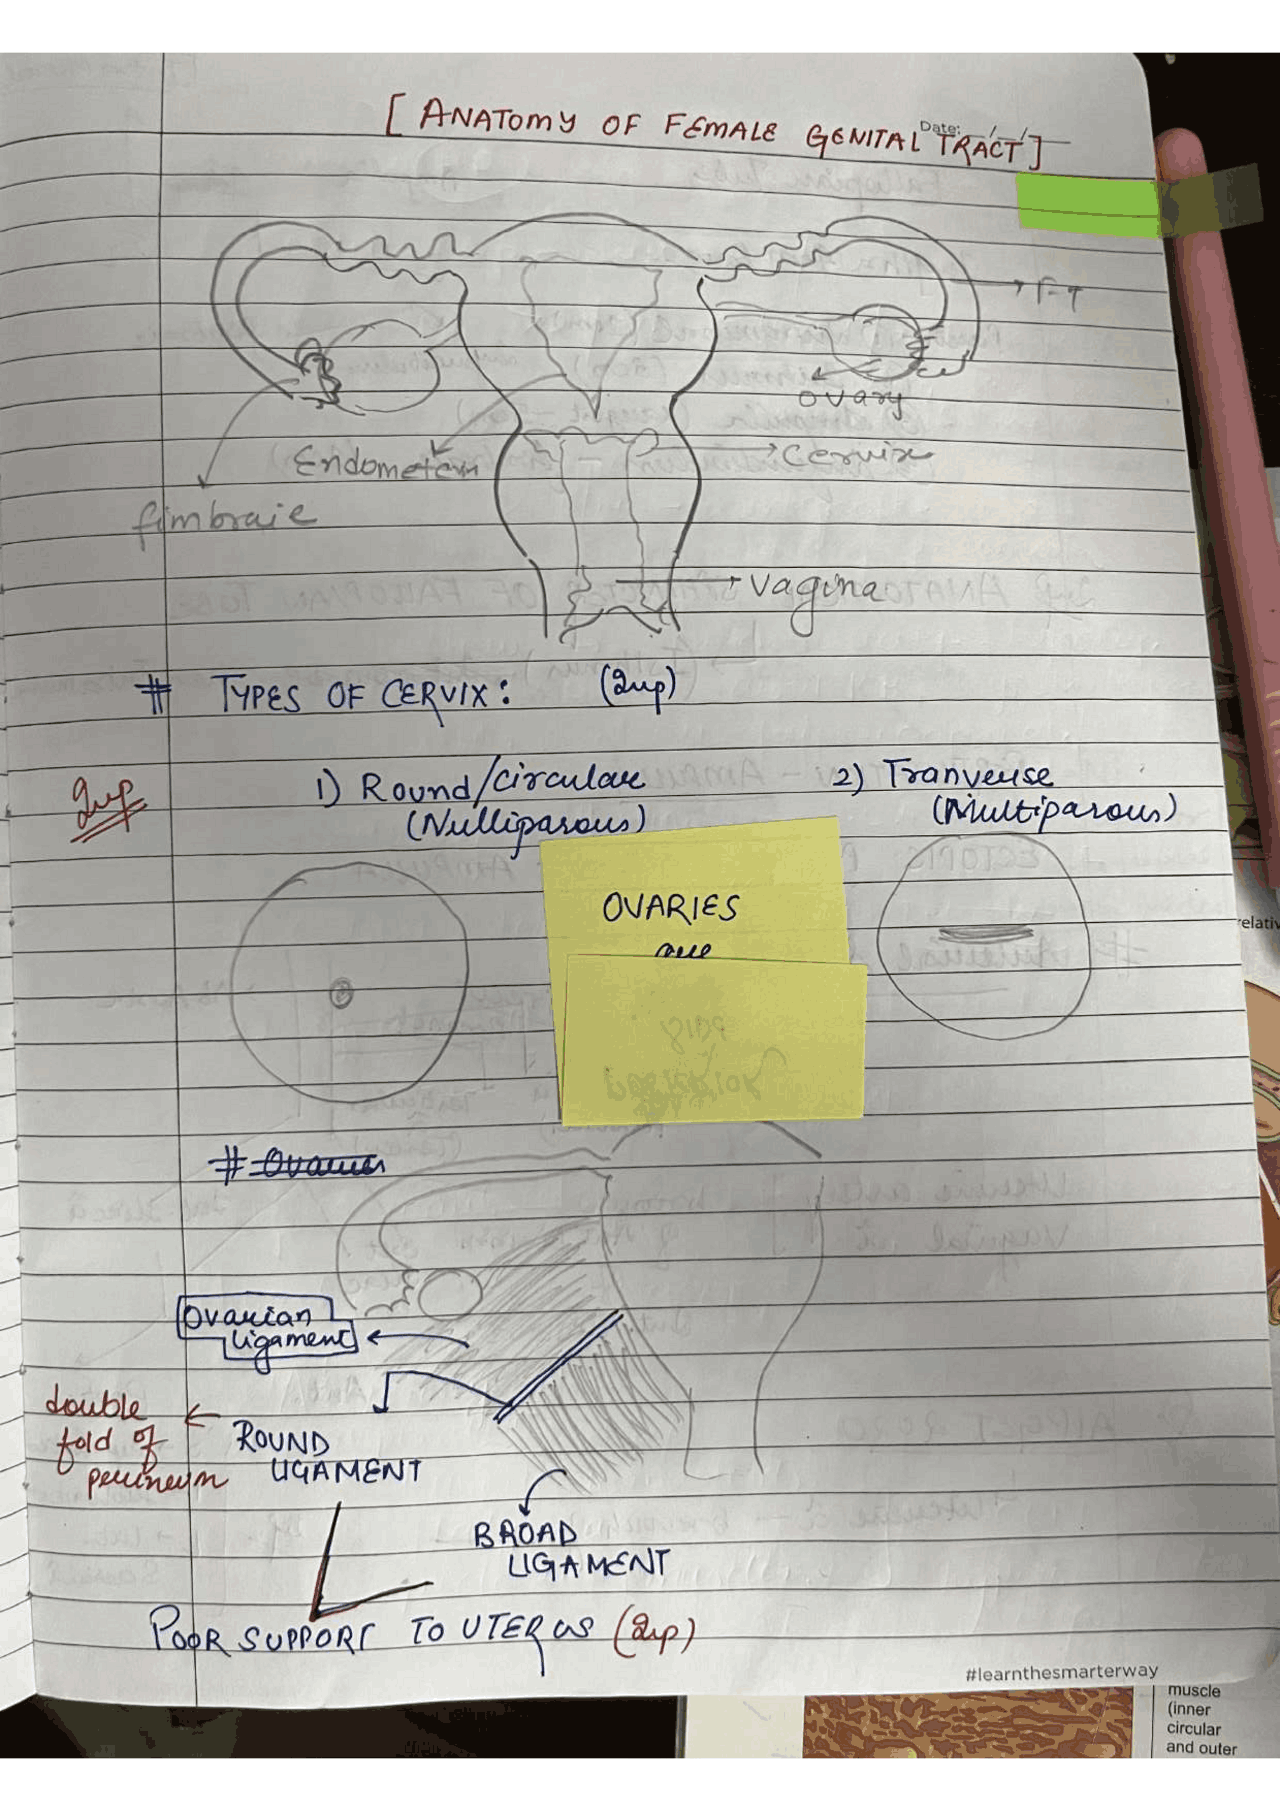 [ ANATOMY OF FEMALE GENITAL TRACT ]
Date: / /
F.T
ovary
Endometem
cervix
fimbraie
vagina
# TYPES OF CERVIX: (Imp)
Imp
1) Round/circular
(Nulliparous)
2) Tranverse
(Multiparous)
OVARIES
are
relativ
# Ovaries
Ovarian
ligament
double
fold of
perineum
ROUND
LIGAMENT
BROAD
LIGAMENT
POOR SUPPORT TO UTERUS (Imp)
#learnthesmarterway
muscle
(inner
circular
and outer